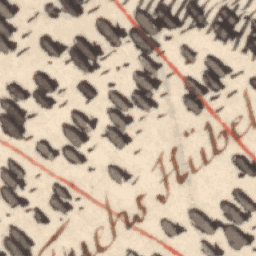 Fuchs Hübel